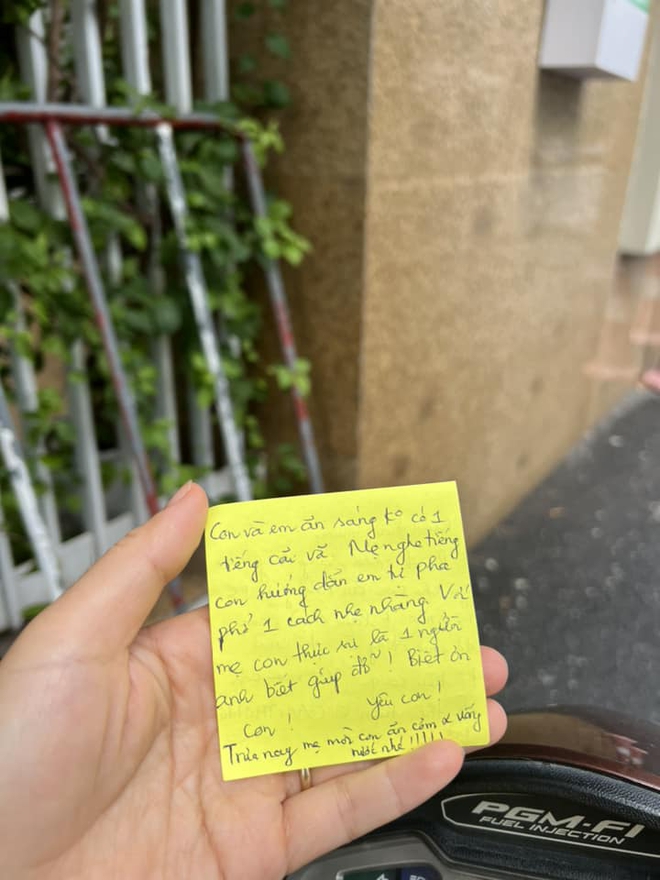 Con và em ăn sáng ko có 1
tiếng cãi vã Mẹ nghe tiếng
con hướng dẫn em tự pha
phở 1 cách nhẹ nhàng. Với
mẹ con thực sự là 1 người
anh biết giúp đỡ! Biết ơn
Con! Yêu con!
Trưa nay mẹ mời con ăn cơm
nước nhé !!!!!
PGM-FI
FUEL INJECTION